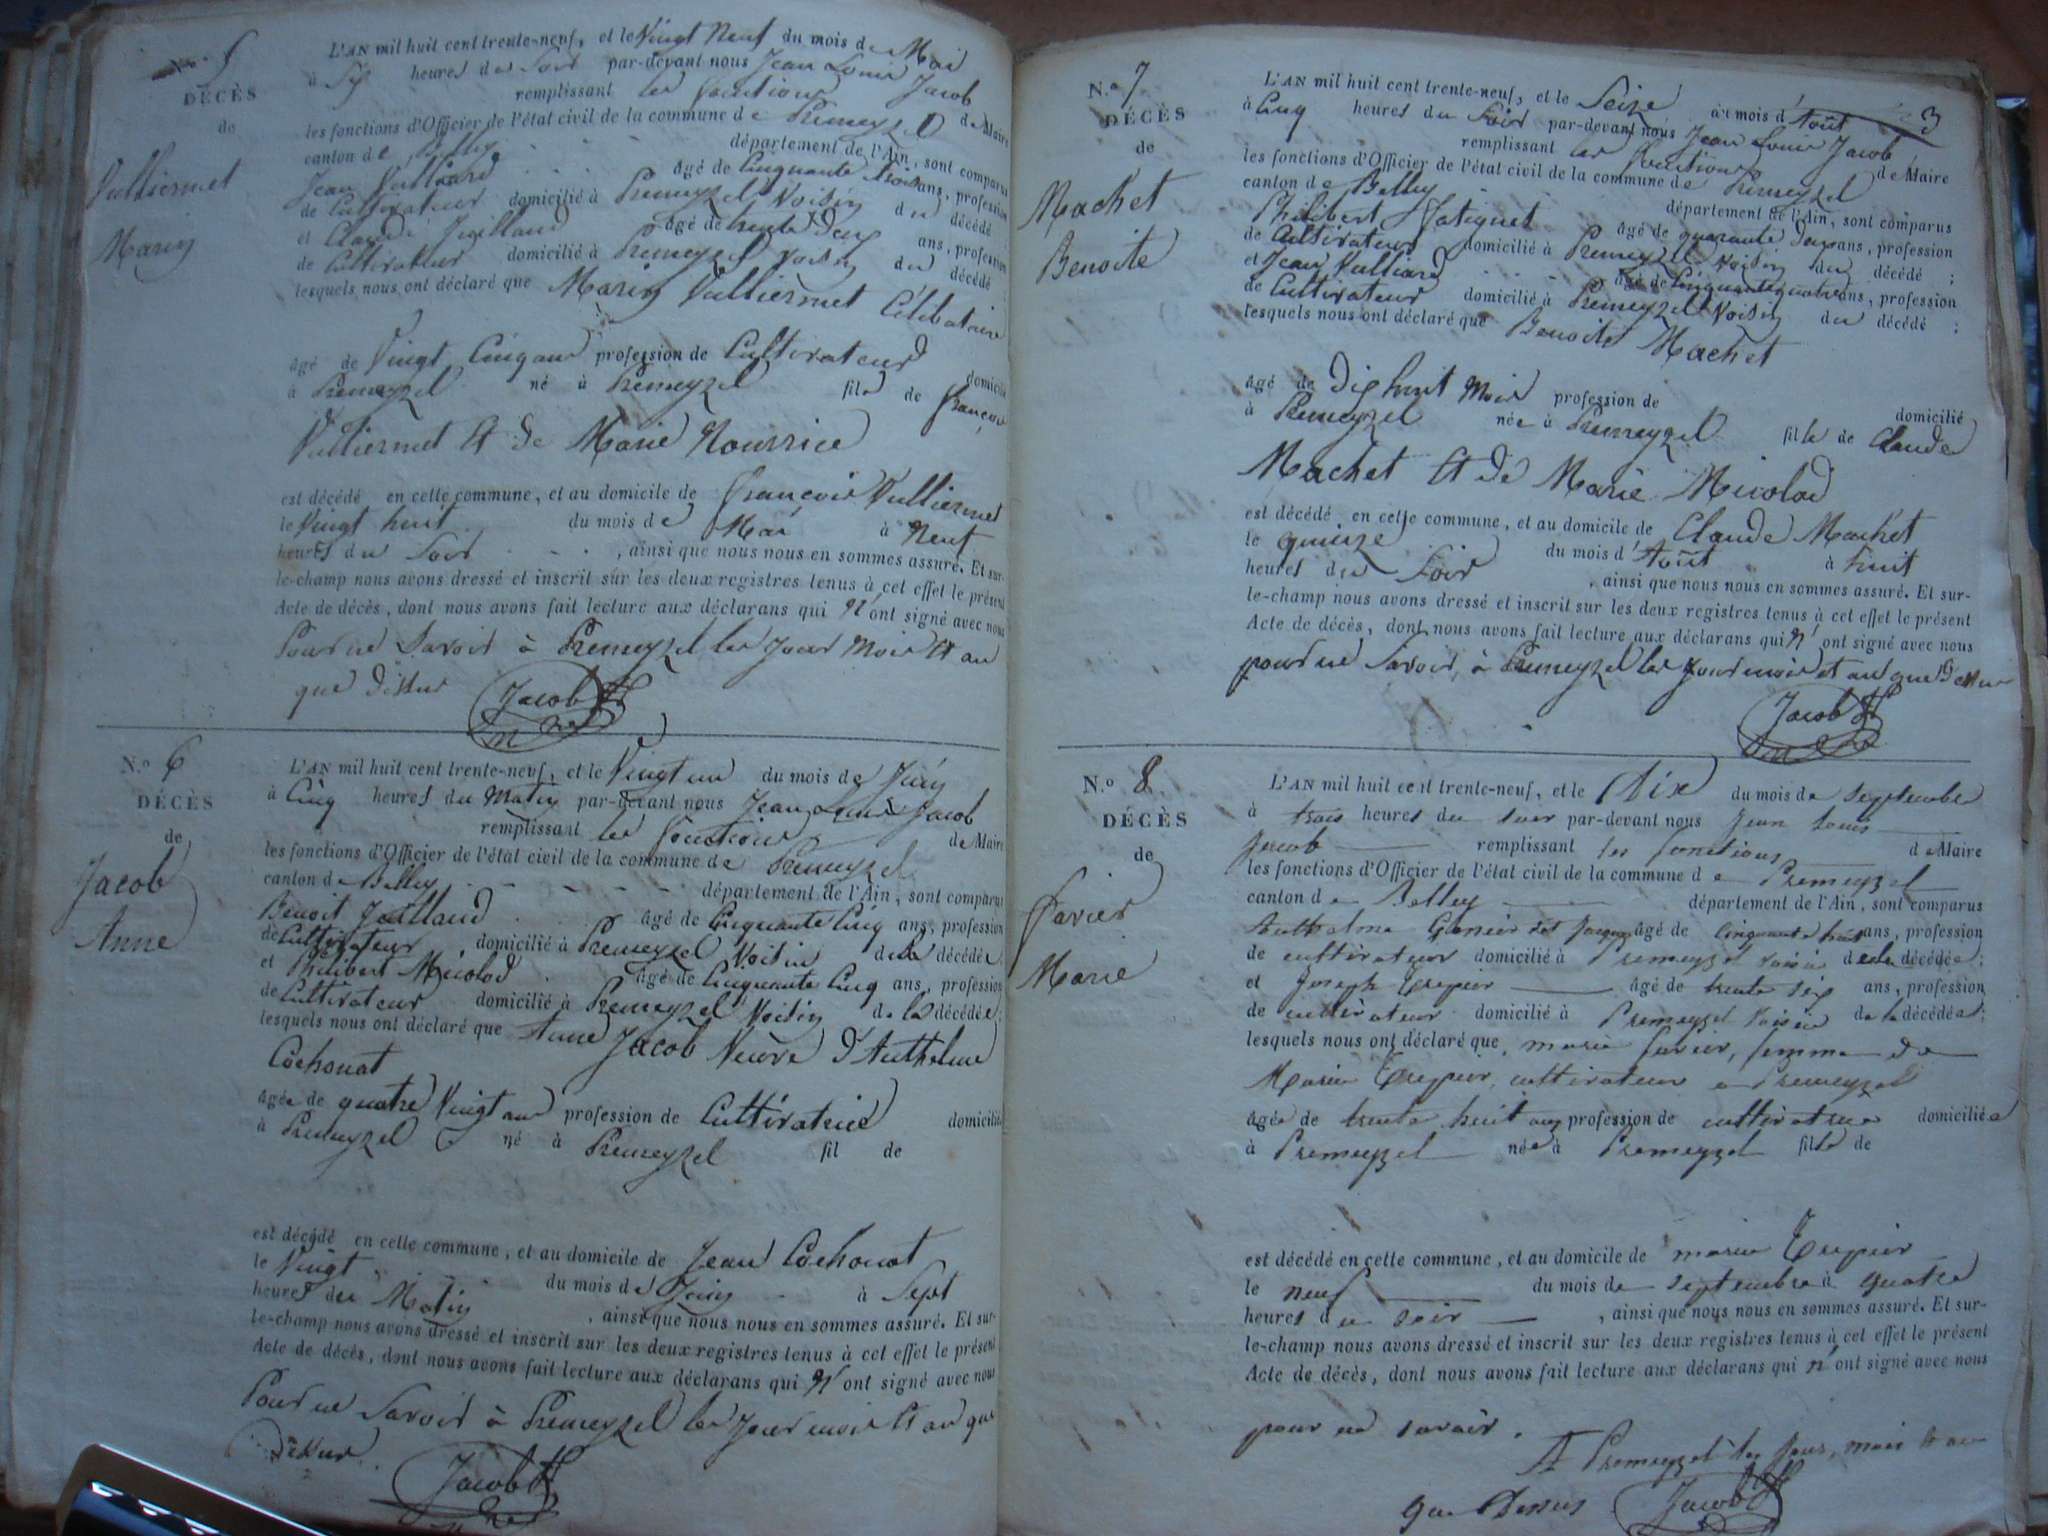 N.° 5
DÉCÈS
de
Vulliermet
Marin
L'AN mil huit cent trente-neuf, et le Vingt Neuf du mois de Mai
à Six heures du Soir par-devant nous Jean Louis Jacob
remplissant les fonctions de Maire
les fonctions d'Officier de l'état civil de la commune de Premeyzel
canton de Belley département de l'Ain, sont comparus
Jean Vulliard âgé de Cinquante trois ans, profession
de Cultivateur domicilié à Premeyzel Voisin du décédé ;
et Claude Juilland âgé de trente deux ans, profession
de Cultivateur domicilié à Premeyzel Voisin du décédé ;
lesquels nous ont déclaré que Marin Vulliermet Célibataire
âgé de Vingt Cinq ans profession de Cultivateur domicilié
à Premeyzel né à Premeyzel fils de françois
Vulliermet Et de Marie Nourrice
est décédé en cette commune, et au domicile de françois Vulliermet
le Vingt huit du mois de Mai à Neuf
heures du Soir , ainsi que nous nous en sommes assuré. Et sur-
le-champ nous avons dressé et inscrit sur les deux registres tenus à cet effet le présent
Acte de décès, dont nous avons fait lecture aux déclarans qui n'ont signé avec nous
Pour ne Savoir à Premeyzel les Jour Mois Et an
que dessus Jacob
N.° 6
DÉCÈS
de
Jacob
Anne
L'AN mil huit cent trente-neuf, et le Vingt un du mois de Juin
à Cinq heures du Matin par-devant nous Jean Louis Jacob
remplissant les fonctions de Maire
les fonctions d'Officier de l'état civil de la commune de Premeyzel
canton de Belley département de l'Ain, sont comparus
Benoit Juilland âgé de Cinquante Cinq ans, profession
de Cultivateur domicilié à Premeyzel Voisin de la décédée ;
et Philibert Micolod âgé de Cinquante Cinq ans, profession
de Cultivateur domicilié à Premeyzel Voisin de la décédée ;
lesquels nous ont déclaré que Anne Jacob Veuve d'Anthelme
Cochonat
âgée de quatre Vingt ans profession de Cultivatrice domiciliée
à Premeyzel né à Premeyzel fil de
est décédé en cette commune, et au domicile de Jean Cochonat
le Vingt du mois de Juin à Sept
heures du Matin , ainsi que nous nous en sommes assuré. Et sur-
le-champ nous avons dressé et inscrit sur les deux registres tenus à cet effet le présent
Acte de décès, dont nous avons fait lecture aux déclarans qui n'ont signé avec nous
Pour ne Savoir à Premeyzel les Jour mois Et an que
Dessus Jacob
3
N.° 7
DÉCÈS
de
Machet
Benoite
L'AN mil huit cent trente-neuf, et le Seize du mois d'Août
à Cinq heures du Soir par-devant nous Jean Louis Jacob
remplissant les fonctions de Maire
les fonctions d'Officier de l'état civil de la commune de Premeyzel
canton de Belley département de l'Ain, sont comparus
Philibert âgé de quarante deux ans, profession
de Cultivateur domicilié à Premeyzel Voisin du décédé ;
et Jean Vulliard âgé de Cinquante quatre ans, profession
de Cultivateur domicilié à Premeyzel Voisin du décédé ;
lesquels nous ont déclaré que Benoite Machet
âgé de Dix huit Mois profession de domicilié
à Premeyzel née à Premeyzel fille de Claude
Machet Et de Marie Micolod
est décédé en cette commune, et au domicile de Claude Machet
le quinze du mois d'Août à huit
heures du Soir , ainsi que nous nous en sommes assuré. Et sur-
le-champ nous avons dressé et inscrit sur les deux registres tenus à cet effet le présent
Acte de décès, dont nous avons fait lecture aux déclarans qui n'ont signé avec nous
pour ne Savoir, à Premeyzel les Jour mois et an que Dessus
Jacob
N.° 8
DÉCÈS
de
Favier
Marie
L'AN mil huit cent trente-neuf, et le Dix du mois de Septembre
à trois heures du soir par-devant nous Jean Louis
Jacob remplissant les fonctions de Maire
les fonctions d'Officier de l'état civil de la commune de Premeyzel
canton de Belley département de l'Ain, sont comparus
Anthelme dit âgé de cinquante huit ans, profession
de cultivateur domicilié à Premeyzel voisin de la décédée ;
et Joseph Trepier âgé de trente six ans, profession
de cultivateur domicilié à Premeyzel voisin de la décédée ;
lesquels nous ont déclaré que marie favier, femme de
Marin Trepier, cultivateur a Premeyzel
âgée de trente huit ans profession de cultivatrice domiciliée
à Premeyzel née à Premeyzel fille de
est décédé en cette commune, et au domicile de marin Trepier
le neuf du mois de septembre à quatre
heures du soir , ainsi que nous nous en sommes assuré. Et sur-
le-champ nous avons dressé et inscrit sur les deux registres tenus à cet effet le présent
Acte de décès, dont nous avons fait lecture aux déclarans qui n'ont signé avec nous
pour ne savoir.
A Premeyzel les Jour, mois et an
que Dessus Jacob